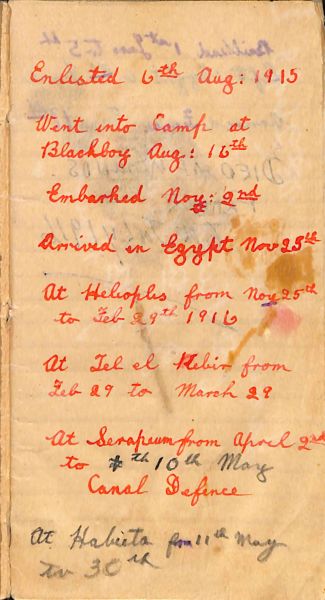 Enlisted 6th Aug: 1915
Went into Camp at
Blackboy Aug: 16th
Embarked Nov: 2nd
Arrived in Egypt Nov 25th
At Helioplis from Nov 25th
to Feb 29th 1916
At Tel el Kebir from
Feb 29 to March 29
At Serapeum from April 2nd
to 10th May
Canal Defence
At Habieta from 11th May
to 30th